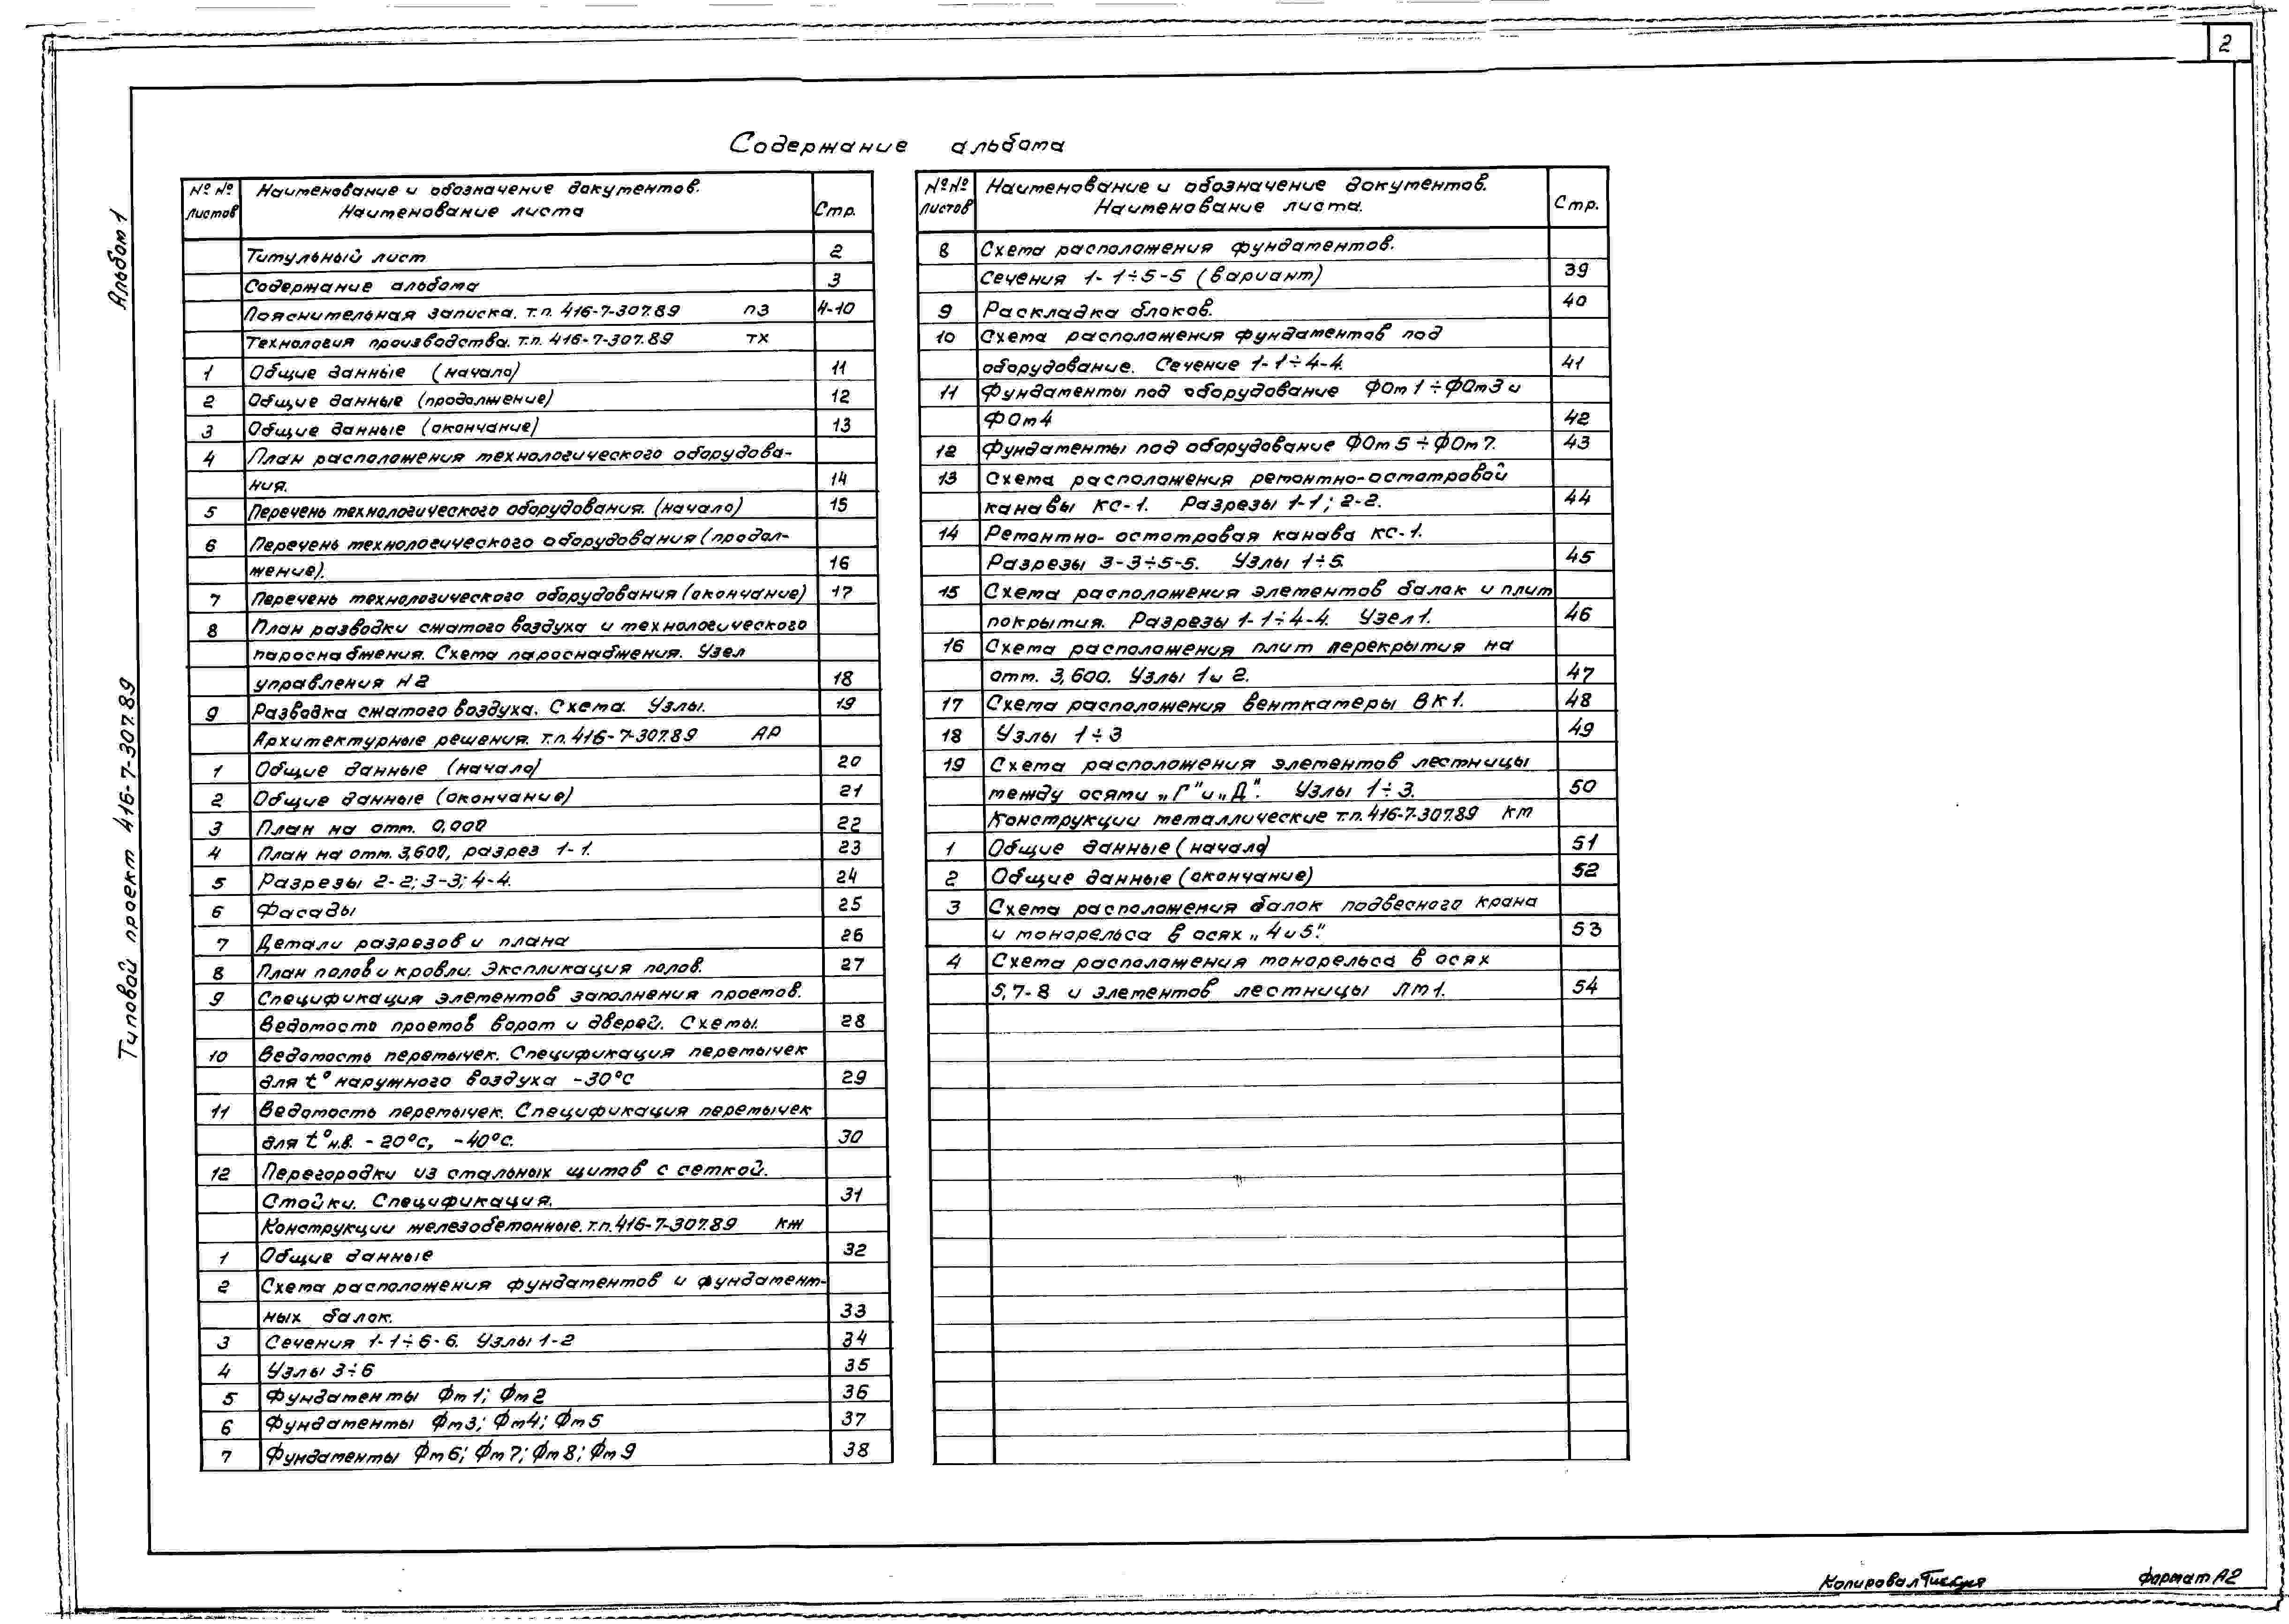 2
Содержание альбома
Альбом 1
Типовой проект 416-7-307.89
№ № листов Наименование и обозначение документов. Наименование листа Стр.
Титульный лист 2
Содержание альбома 3
Пояснительная записка. т.п. 416-7-307.89 ПЗ 4-10
Технология производства. т.п. 416-7-307.89 ТХ
1 Общие данные (начало) 11
2 Общие данные (продолжение) 12
3 Общие данные (окончание) 13
4 План расположения технологического оборудова-
ния. 14
5 Перечень технологического оборудования. (начало) 15
6 Перечень технологического оборудования (продол-
жение). 16
7 Перечень технологического оборудования (окончание) 17
8 План разводки сжатого воздуха и технологического
пароснабжения. Схема пароснабжения. Узел
управления N2 18
9 Разводка сжатого воздуха. Схема. Узлы. 19
Архитектурные решения. т.п. 416-7-307.89 АР
1 Общие данные (начало) 20
2 Общие данные (окончание) 21
3 План на отм. 0,000 22
4 План на отм. 3,600, разрез 1-1. 23
5 Разрезы 2-2; 3-3; 4-4. 24
6 Фасады 25
7 Детали разрезов и плана 26
8 План полов и кровли. Экспликация полов. 27
9 Спецификация элементов заполнения проемов.
Ведомость проемов ворот и дверей. Схемы. 28
10 Ведомость перемычек. Спецификация перемычек
для t° наружного воздуха -30°С 29
11 Ведомость перемычек. Спецификация перемычек
для t° н.в. -20°С, -40°С. 30
12 Перегородки из стальных щитов с сеткой.
Стойки. Спецификация. 31
Конструкции железобетонные. т.п. 416-7-307.89 КЖ
1 Общие данные 32
2 Схема расположения фундаментов и фундамент-
ных балок. 33
3 Сечения 1-1÷6-6. Узлы 1-2 34
4 Узлы 3÷6 35
5 Фундаменты Фм1; Фм2 36
6 Фундаменты Фм3; Фм4; Фм5 37
7 Фундаменты Фм6; Фм7; Фм8; Фм9 38
№ № листов Наименование и обозначение документов. Наименование листа. Стр.
8 Схема расположения фундаментов.
Сечения 1-1÷5-5 (вариант) 39
9 Раскладка блоков. 40
10 Схема расположения фундаментов под
оборудование. Сечение 1-1÷4-4. 41
11 Фундаменты под оборудование ФОм1÷ФОм3 и
ФОм4 42
12 Фундаменты под оборудование ФОм5÷ФОм7. 43
13 Схема расположения ремонтно-осмотровой
канавы КС-1. Разрезы 1-1; 2-2. 44
14 Ремонтно-осмотровая канава КС-1.
Разрезы 3-3÷5-5. Узлы 1÷5. 45
15 Схема расположения элементов балок и плит
покрытия. Разрезы 1-1÷4-4. Узел 1. 46
16 Схема расположения плит перекрытия на
отм. 3,600. Узлы 1 и 2. 47
17 Схема расположения венткамеры ВК1. 48
18 Узлы 1÷3 49
19 Схема расположения элементов лестницы
между осями „Г" и „Д". Узлы 1÷3. 50
Конструкции металлические т.п. 416-7-307.89 КМ
1 Общие данные (начало) 51
2 Общие данные (окончание) 52
3 Схема расположения балок подвесного крана
и монорельса в осях „4 и 5". 53
4 Схема расположения монорельса в осях
5, 7-8 и элементов лестницы ЛМ1. 54
Копировал
Формат А2